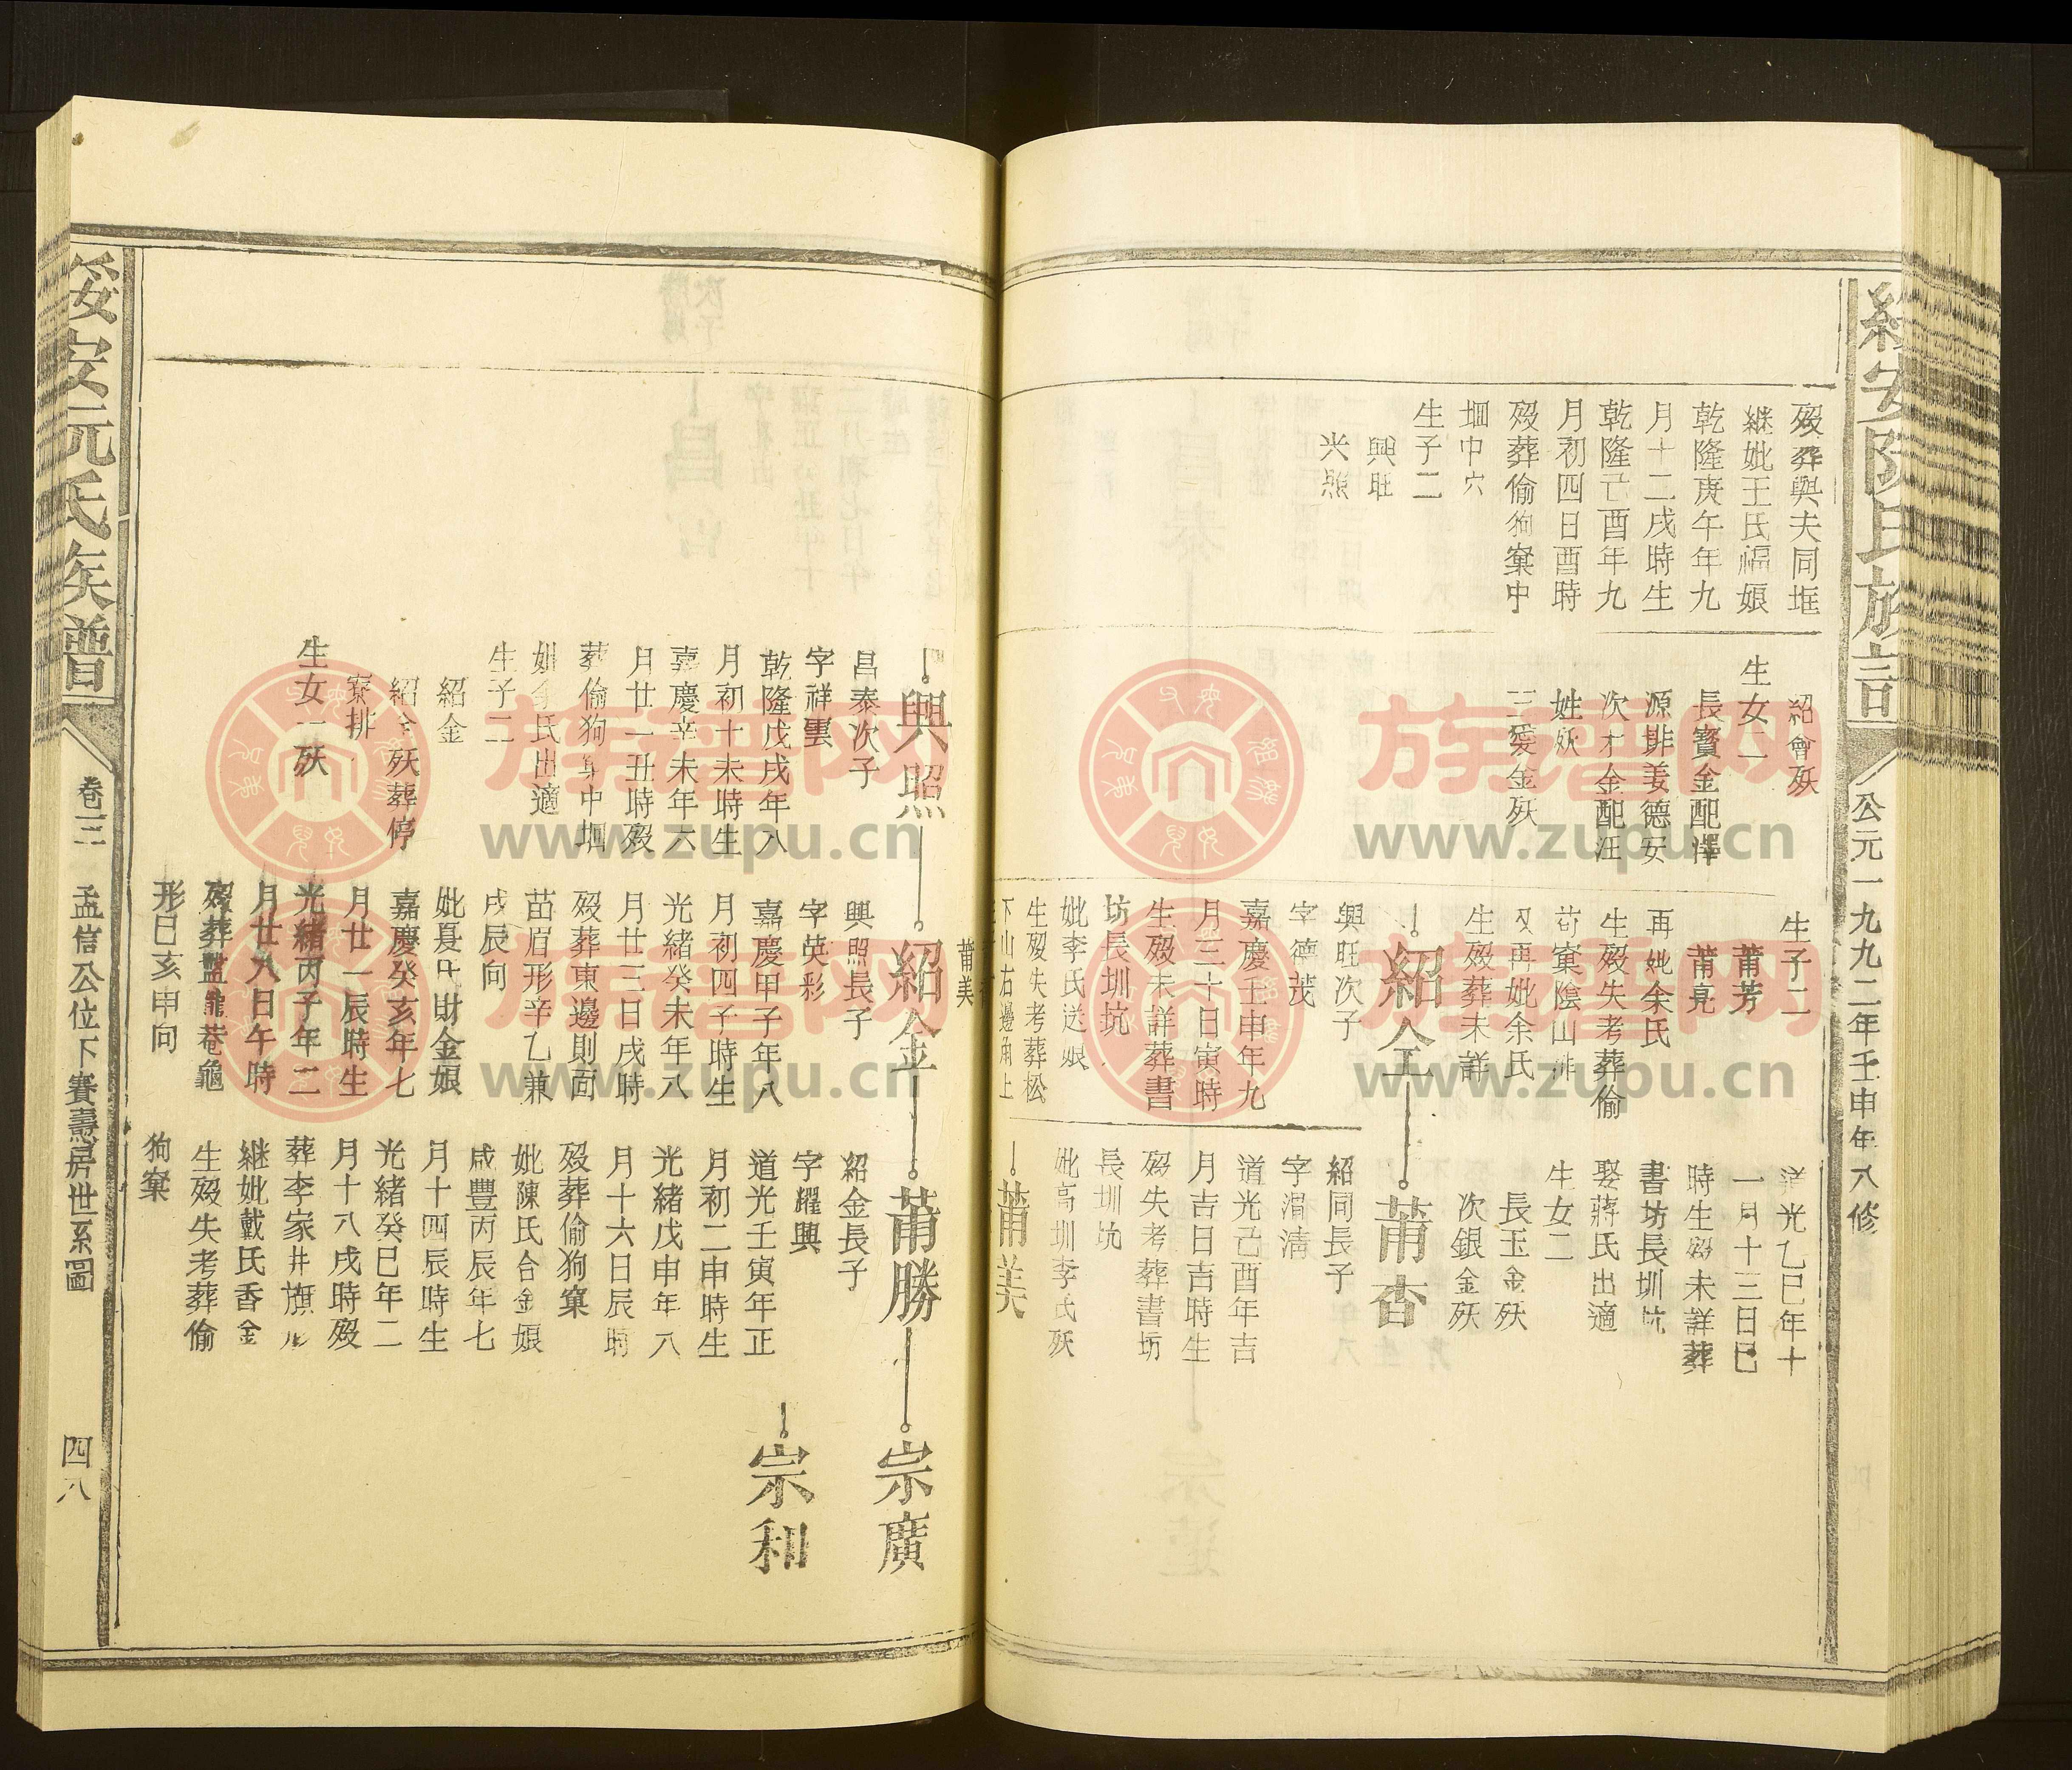 公元一九九二年壬申年八修
歿葬與夫同堆
継妣王氏福娘
乾隆庚午年九
月十二戌時生
乾隆己酉年九
月初四日酉時
歿葬偷狗窠中
堌中穴
生子二
興旺
興照
紹會殀
生女二
長寳金配澤
源排姜德安
次才金配汪
姓殀
三愛金殀
生子二
莆芳
莆亮
再妣余氏
生歿失考葬偷
茍窠陰山排
又再妣余氏
生歿葬未詳
紹仝
興旺次子
字德茂
嘉慶壬申年九
月三十日寅時
生歿未詳葬書
坊長圳坑
妣李氏送娘
生歿失考葬松
下山右邊角上
莆美
道光乙巳年十
一月十三日巳
時生歿未詳葬
書坊長圳坑
娶蔣氏出適
生女二
長玉金殀
次銀金殀
莆杏
紹同長子
字渭清
道光己酉年吉
月吉日吉時生
歿失考葬書坊
長圳坑
妣高圳李氏殀
莆美
興照
昌泰次子
字祥雲
乾隆戊戌年八
月初十未時生
嘉慶辛未年六
月廿一丑時歿
葬偷狗窠中堌
妣余氏出適
生子二
紹金
紹全殀葬停
寮排
生女一殀
紹金
興照長子
字英彩
嘉慶甲子年八
月初四子時生
光緒癸未年八
月廿二日戌時
歿葬東邊則面
苗眉形辛乙兼
戌辰向
妣夏氏財金娘
嘉慶癸亥年七
月廿一辰時生
光緒丙子年二
月廿八日午時
歿葬盐龜巷龜
形巳亥申向
莆勝
紹金長子
字耀興
道光壬寅年正
月初二申時生
光緒戊申年八
月十六日辰時
歿葬偷狗窠
妣陳氏合金娘
咸豐丙辰年七
月十四辰時生
光緒癸巳年二
月十八戌時歿
葬李家井旗形
継妣戴氏香金
生歿失考葬偷
狗窠
宗廣
宗和
綏安阮氏族譜
卷三
孟信公位下賽壽居世系圖
四八
族谱网
www.zupu.cn
族谱网
www.zupu.cn
族谱网
www.zupu.cn
族谱网
www.zupu.cn